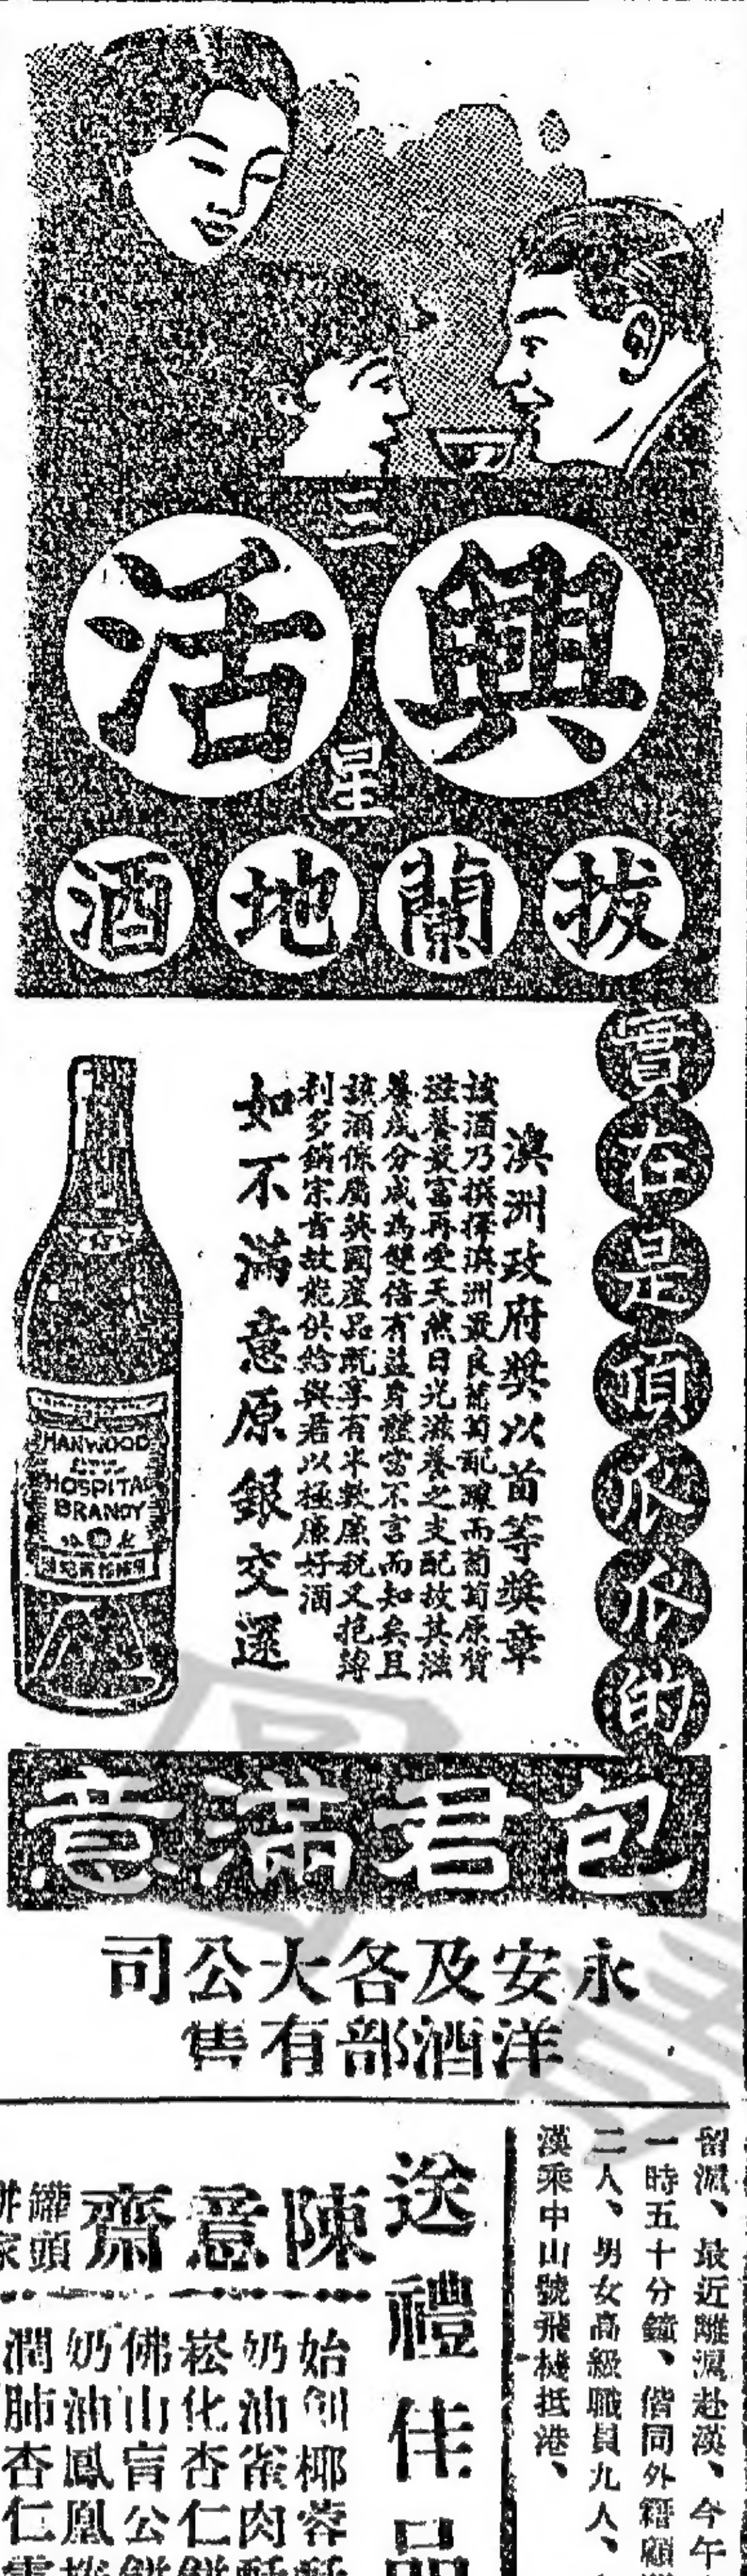 三星
興活
拔蘭地酒
實在是頂刮刮的
澳洲政府獎以首等獎章
該酒乃撰擇澳洲最良葡萄配釀而葡萄原質
滋養最富再受天然日光滋養之支配故其滋
養成分咸為雙倍有益身體當不言而知矣且
該酒係屬英國產品既享有半數廉稅又抱薄
利多銷宗旨故能供給與君以極廉好酒
如不滿意原銀交還
HANWOOD
HOSPITAL
BRANDY
包君滿意
永安及各大公司
洋酒部有售
留滬、最近離滬赴漢、今午
一時五十分鐘、偕同外籍顧
二人、男女高級職員九人、
漢乘中山號飛機抵港、
送禮佳品
陳意齋
罐頭
始創椰蓉
奶油雀肉酥
崧化杏仁餅
佛山盲公餅
奶油鳳凰
潤肺杏仁霜